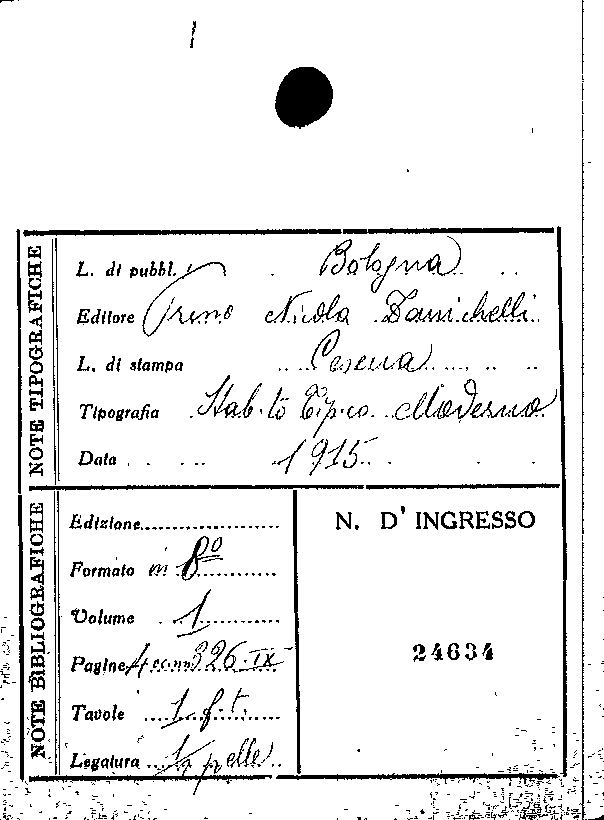 NOTE TIPOGRAFICHE
L. di pubbl. Bologna
Editore Nicola Zanichelli
L. di stampa Cesena
Tipografia Stab.to Tip.co Moderno
Data 1915
NOTE BIBLIOGRAFICHE
Edizione
Formato in 8º
Volume 1
Pagine 4 cc.nn 326-IX
Tavole 1 f.t.
Legatura 1/2 pelle
N. D'INGRESSO
24634